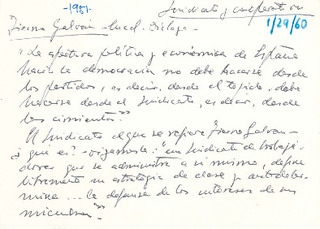 -1971.
Sindicato y cooperativa
1/29/60
Tierno Galván -
"La apertura política y económica de España
hacia la democracia no debe hacerse desde
los partidos, es decir, desde el tejado, debe
hacerse desde el sindicato, es decir, desde
los cimientos".
El sindicato al que se refiere Tierno Galván -
¿qué es? - oigámosle: "un sindicato de trabaja-
dores que se administre a sí mismo, defina
libremente su estrategia de clase y autodeter-
mine ... la defensa de los intereses de sus
miembros".